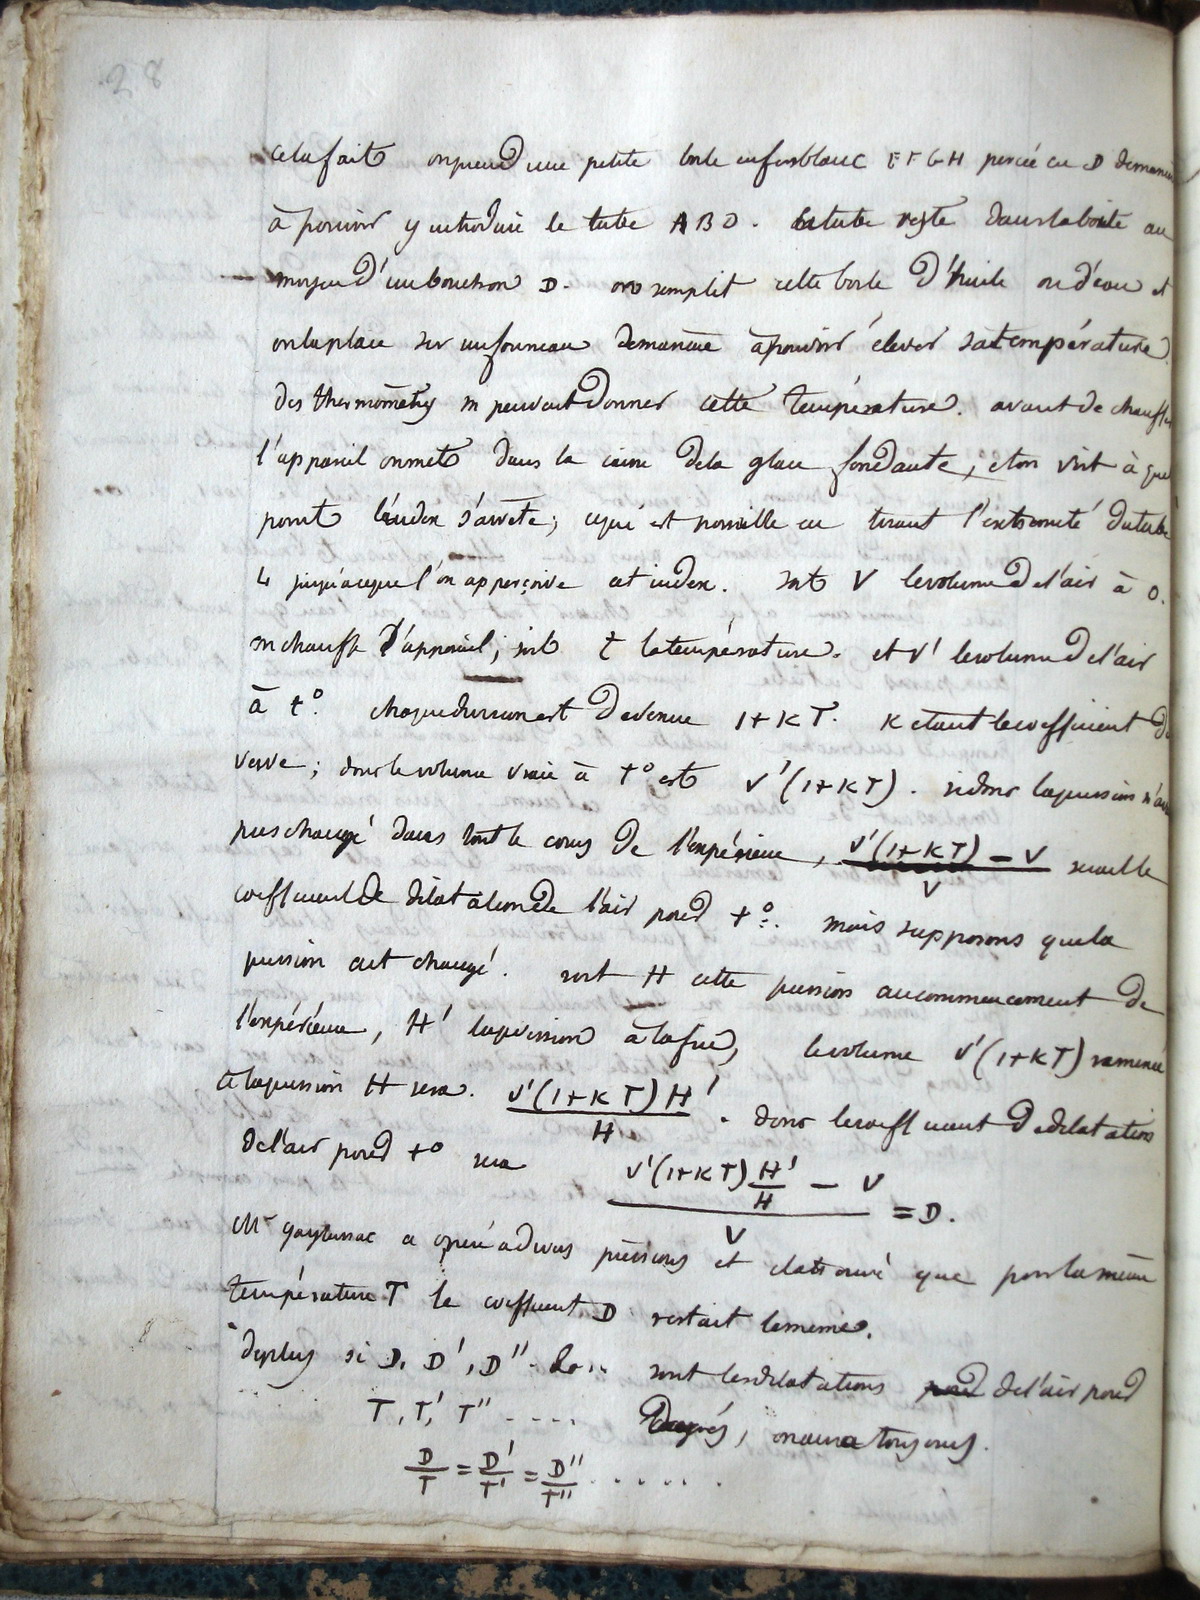 28
cela fait on prend une petite boite en fer blanc EFGH percée en D de maniere
à pouvoir y introduire le tube ABD. le tube reste dans la boite au
moyen d'un bouchon D. on remplit cette boite d'huile ou d'eau et
on la place sur un fourneau de maniere à pouvoir élever sa température
des thermomètres m peuvent donner cette température. avant de chauffer
l'appareil on met dans la caisse de la glace fondante, et on voit à quel
point l'index s'arrete; ce qui est possible en tirant l'extremité du tube
jusqu'a ce que l'on apperçoive cet index. soit V le volume de l'air à 0.
on chauffe l'appareil; soit t la température. et V' le volume de l'air
à t°. chaque division est devenue 1+KT. K etant le coefficient du
verre; donc le volume vrai à t° est V'(1+KT). si donc la pression n'avait
pas changé dans tout le cours de l'expérience, V'(1+KT) - V / V serait le
coefficient de dilatation de l'air pour t°. mais supposons que la
pression ait changé. soit H cette pression au commencement de
l'expérience, H' la pression à la fin, le volume V'(1+KT) ramené
à la pression H sera. V'(1+KT)H' / H . donc le coefficient de dilatation
de l'air pour t° sera V'(1+KT) H'/H - V / V = D.
Mr gaylussac a opéré a divers pressions et il a trouvé que pour la même
température T le coefficient D restait le meme.
deplus si D, D', D'' &c... sont les dilatations de l'air pour
T, T', T'' .... degrés, on aura toujours.
D/T = D'/T' = D''/T'' ......